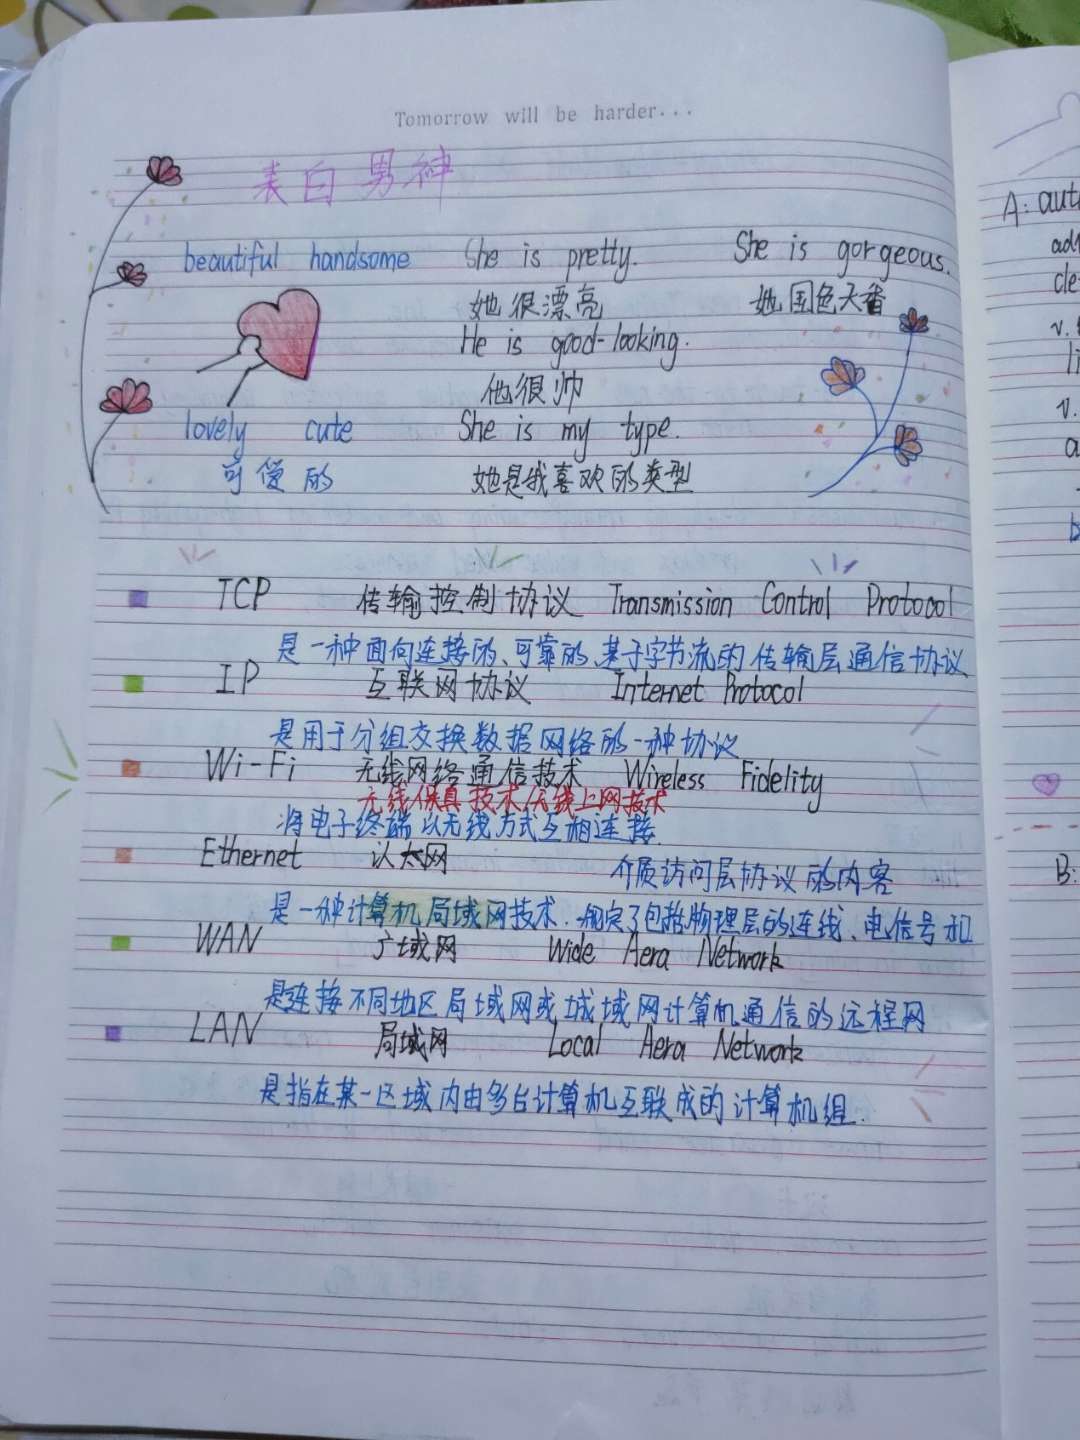 Tomorrow will be harder...
表白男神
beautiful handsome She is pretty. She is gorgeous.
她很漂亮 她国色天香
He is good-looking.
他很帅
lovely cute She is my type.
可爱的 她是我喜欢的类型
TCP 传输控制协议 Transmission Control Protocol
是一种面向连接的、可靠的、基于字节流的传输层通信协议
IP 互联网协议 Internet Protocol
是用于分组交换数据网络的一种协议
Wi-Fi 无线网络通信技术 Wireless Fidelity
无线保真技术/无线上网技术
将电子终端以无线方式互相连接.
Ethernet 以太网 介质访问层协议的内容
是一种计算机局域网技术.规定了包括物理层的连线、电信号和
WAN 广域网 Wide Aera Network
是连接不同地区局域网或城域网计算机通信的远程网
LAN 局域网 Local Aera Network
是指在某一区域内由多台计算机互联成的计算机组.
A: aut
v.
v.
B: